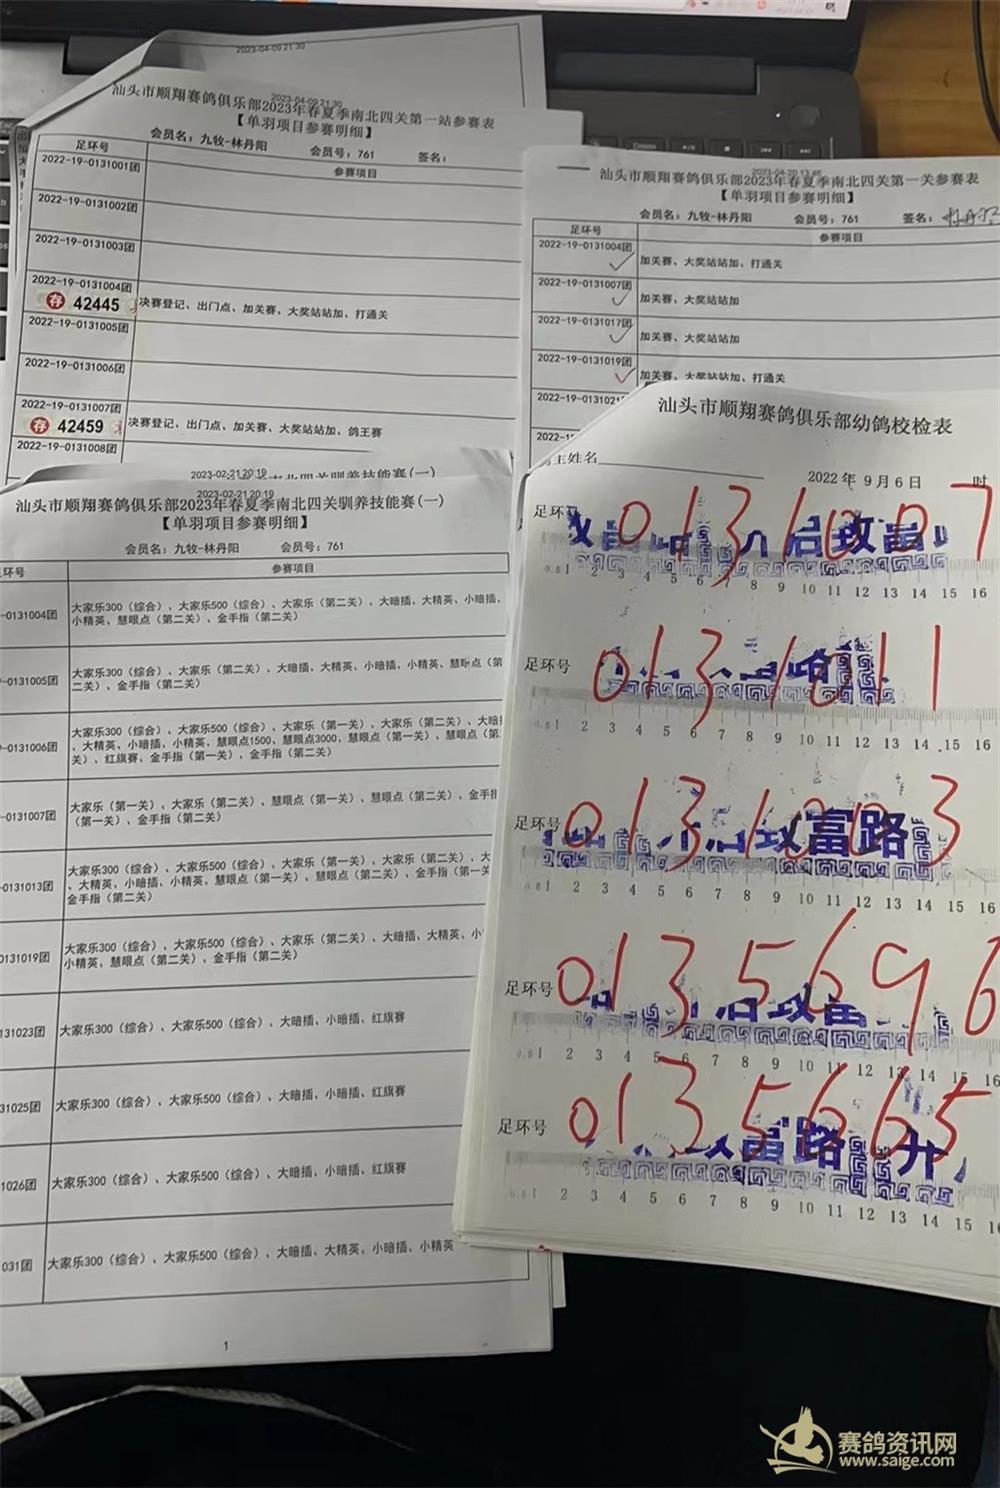 2023-04-09 21 30
2023-04-09 21 30
汕头市顺翔赛鸽俱乐部2023年春夏季南北四关第一站参赛表
【单羽项目参赛明细】
会员名：九牧-林丹阳 会员号：761 签名：
足环号 参赛项目
2022-19-0131001团
2022-19-0131002团
2022-19-0131003团
2022-19-0131004团
存 42445 决赛登记、出门点、加关赛、大奖站站加、打通关
2022-19-0131005团
2022-19-0131006团
2022-19-0131007团
存 42459 决赛登记、出门点、加关赛、大奖站站加、鸽王赛
2022-19-0131008团
汕头市顺翔赛鸽俱乐部2023年春夏季南北四关第一关参赛表
【单羽项目参赛明细】
会员名：九牧-林丹阳 会员号：761 签名：
足环号 参赛项目
2022-19-0131004团 加关赛、大奖站站加、打通关
2022-19-0131007团 加关赛、大奖站站加
2022-19-0131017团 加关赛、大奖站站加
2022-19-0131019团 加关赛、大奖站站加、打通关
2022-19-0131021团
2022-
2023-02-21 20 19
2023-02-21 20 19
汕头市顺翔赛鸽俱乐部2023年春夏季南北四关驯养技能赛(一)
【单羽项目参赛明细】
会员名：九牧-林丹阳 会员号：761
环号 参赛项目
-0131004团 大家乐300（综合）、大家乐500（综合）、大家乐（第二关）、大暗插、大精英、小暗插、
小精英、慧眼点（第二关）、金手指（第二关）
-0131005团 大家乐300（综合）、大家乐（第二关）、大暗插、大精英、小暗插、小精英、慧眼点（第
二关）、金手指（第二关）
-0131006团 大家乐300（综合）、大家乐500（综合）、大家乐（第一关）、大家乐（第二关）、大暗
、大精英、小暗插、小精英、慧眼点1500、慧眼点3000、慧眼点（第一关）、慧眼点（第二
关）、红旗赛、金手指（第一关）、金手指（第二关）
-0131007团 大家乐（第一关）、大家乐（第二关）、慧眼点（第一关）、慧眼点（第二关）、金手指
（第一关）、金手指（第二关）
-0131013团 大家乐300（综合）、大家乐500（综合）、大家乐（第一关）、大家乐（第二关）、大
、大精英、小暗插、小精英、慧眼点（第一关）、慧眼点（第二关）、金手指（第一关
金手指（第二关）
0131019团 大家乐300（综合）、大家乐500（综合）、大家乐（第二关）、大暗插、大精英、小
小精英、慧眼点（第二关）、金手指（第二关）
131023团 大家乐300（综合）、大家乐500（综合）、大暗插、小暗插、红旗赛
31025团 大家乐300（综合）、大家乐500（综合）、大暗插、小暗插、红旗赛
1026团 大家乐300（综合）、大家乐500（综合）、大暗插、小暗插、红旗赛
031团 大家乐300（综合）、大家乐500（综合）、大暗插、大精英、小暗插、小精英
1
汕头市顺翔赛鸽俱乐部幼鸽校检表
主姓名
2022年9月6日 时
足环号 0131007
1 2 3 4 5 6 8 9 10 11 12 13 14 15 16
足环号 0131011
2 3 4 5 6 7 8 9 10 11 12 13 14 15 16
足环号 0131003
富路
1 2 3 4 5 6 7 8 9 10 11 12 13 14 15 16
足环号 0135696
1 2 3 4 5 6 7 8 9 10 11 12 13 14 15 16
足环号 0135665
富路
1 2 3 4 5 6 7 8 9 10 11 12 13 14 15 16
赛鸽资讯网
www.saige.com